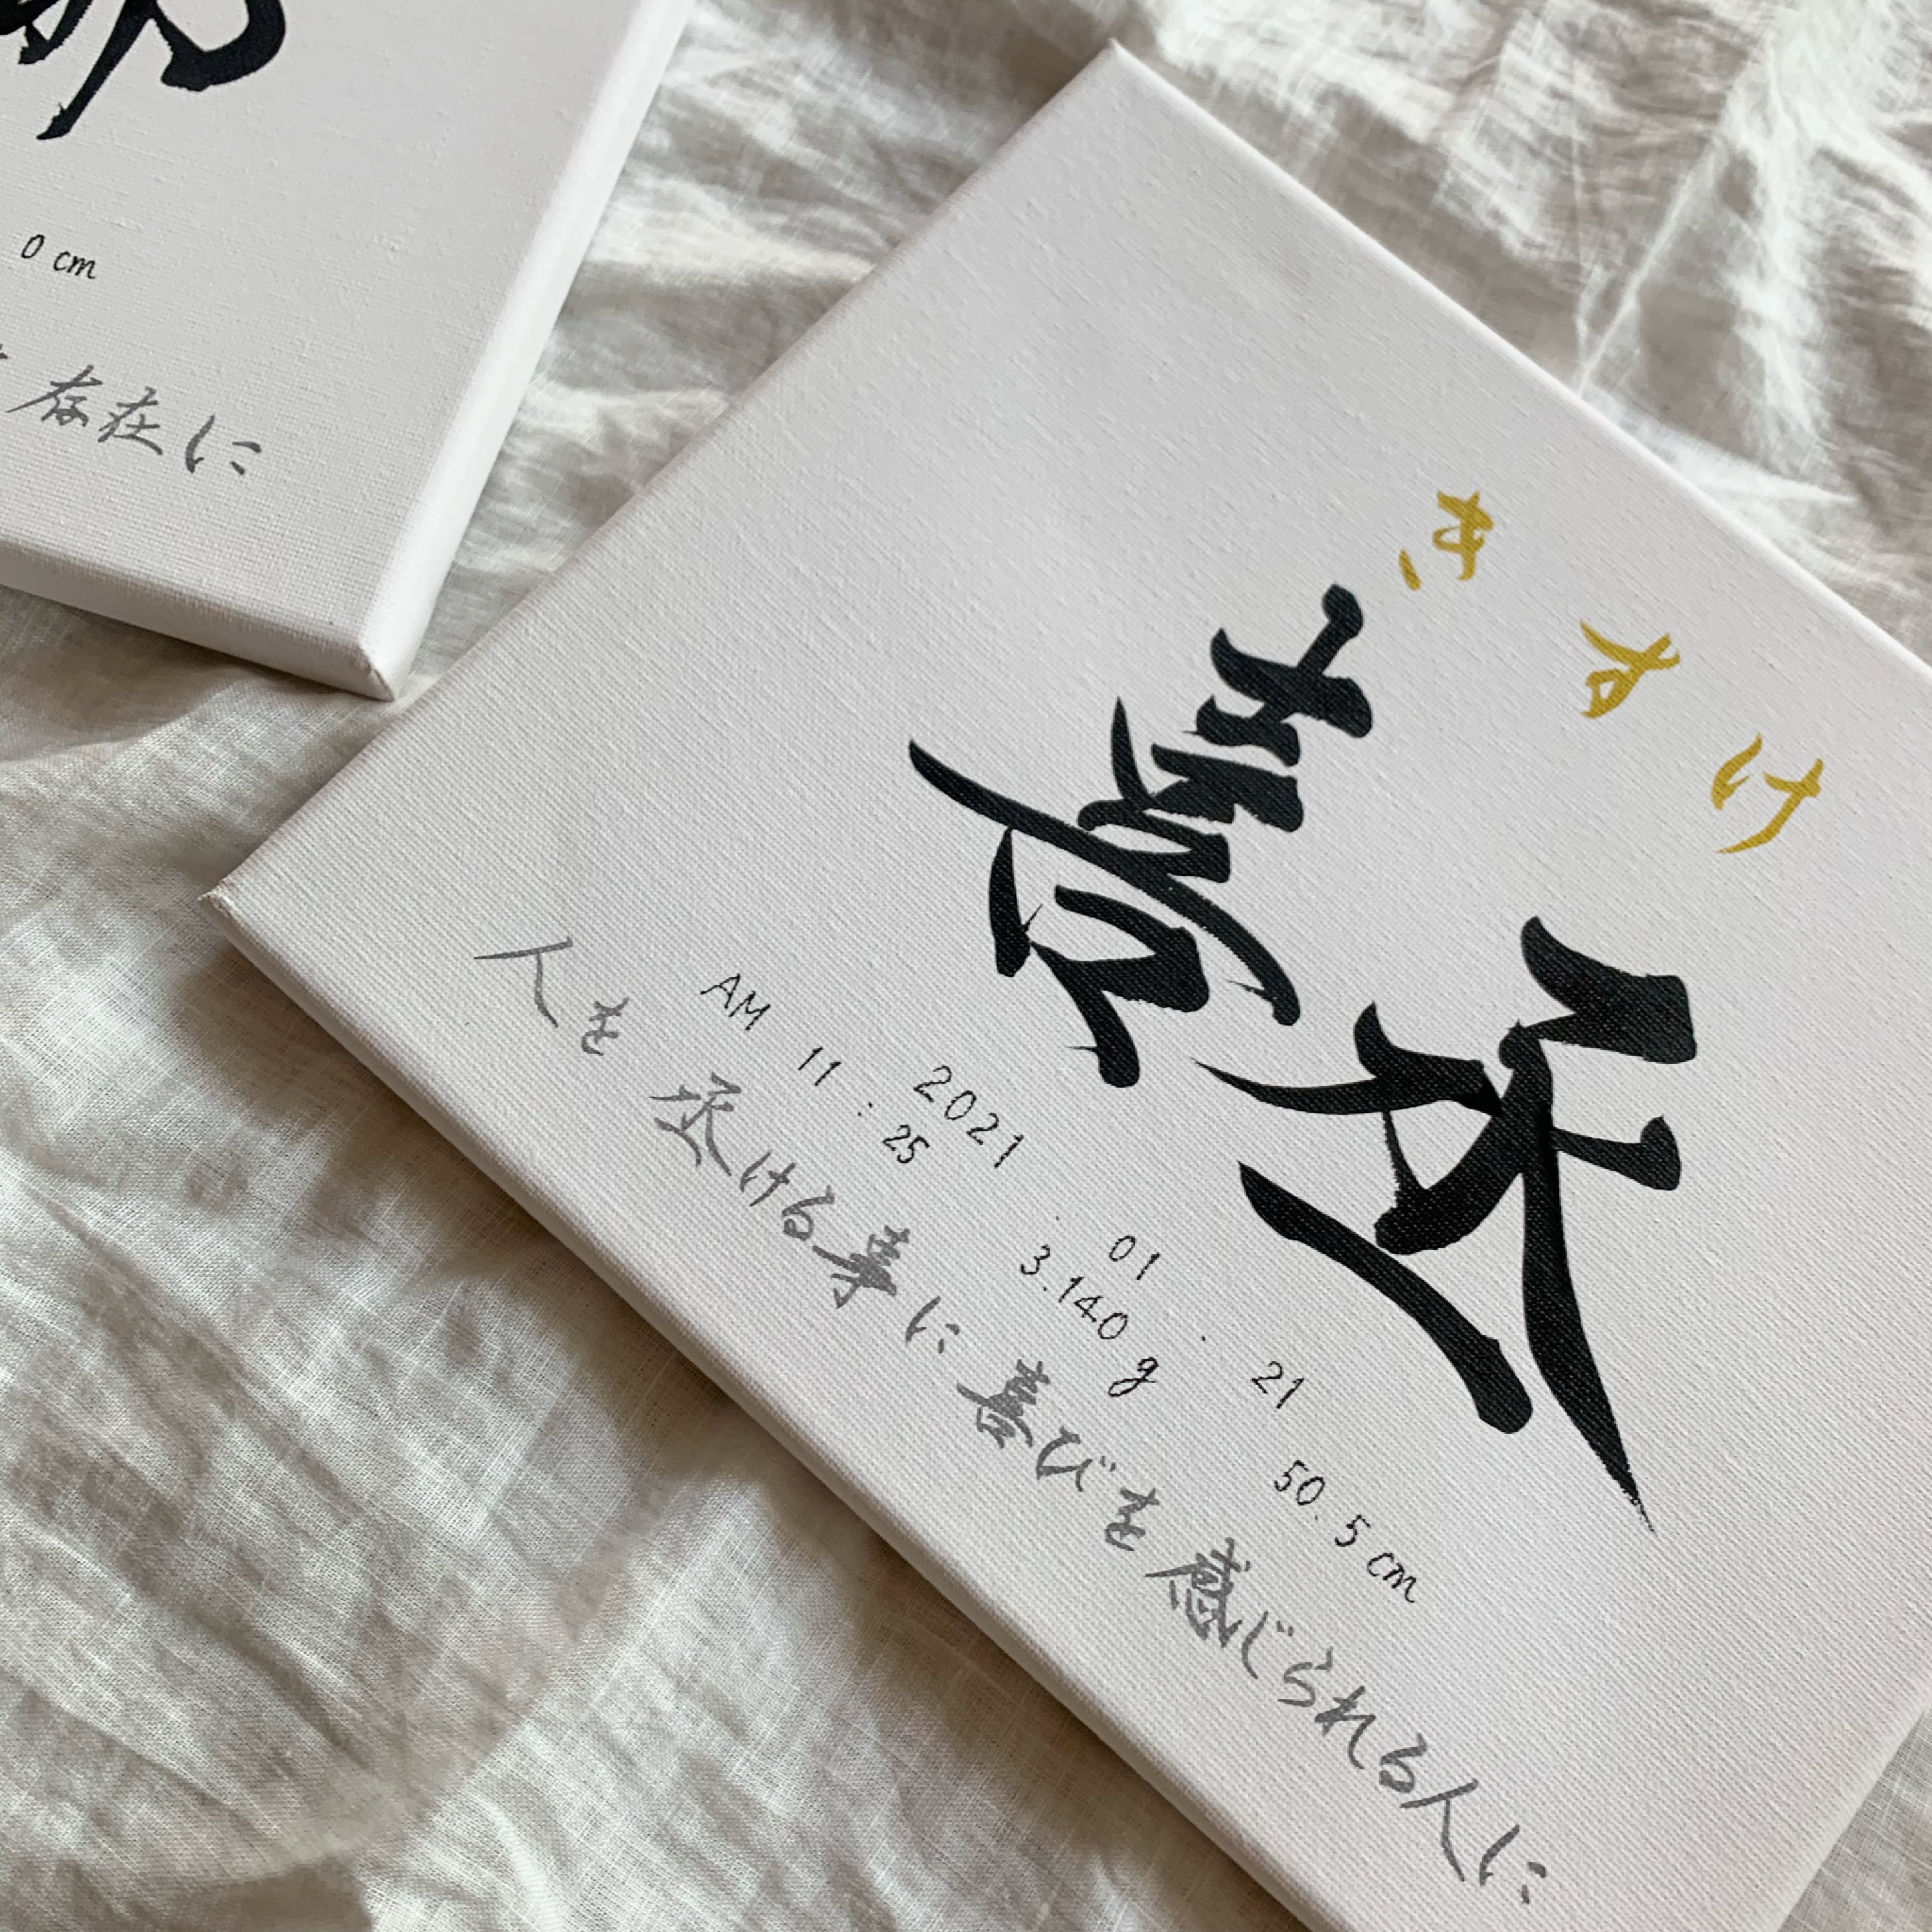 0 cm
存在に
きすけ
喜丞
2021 . 01 . 21
AM 11 : 25 3.140 g 50.5 cm
人を丞ける事に喜びを感じられる人に